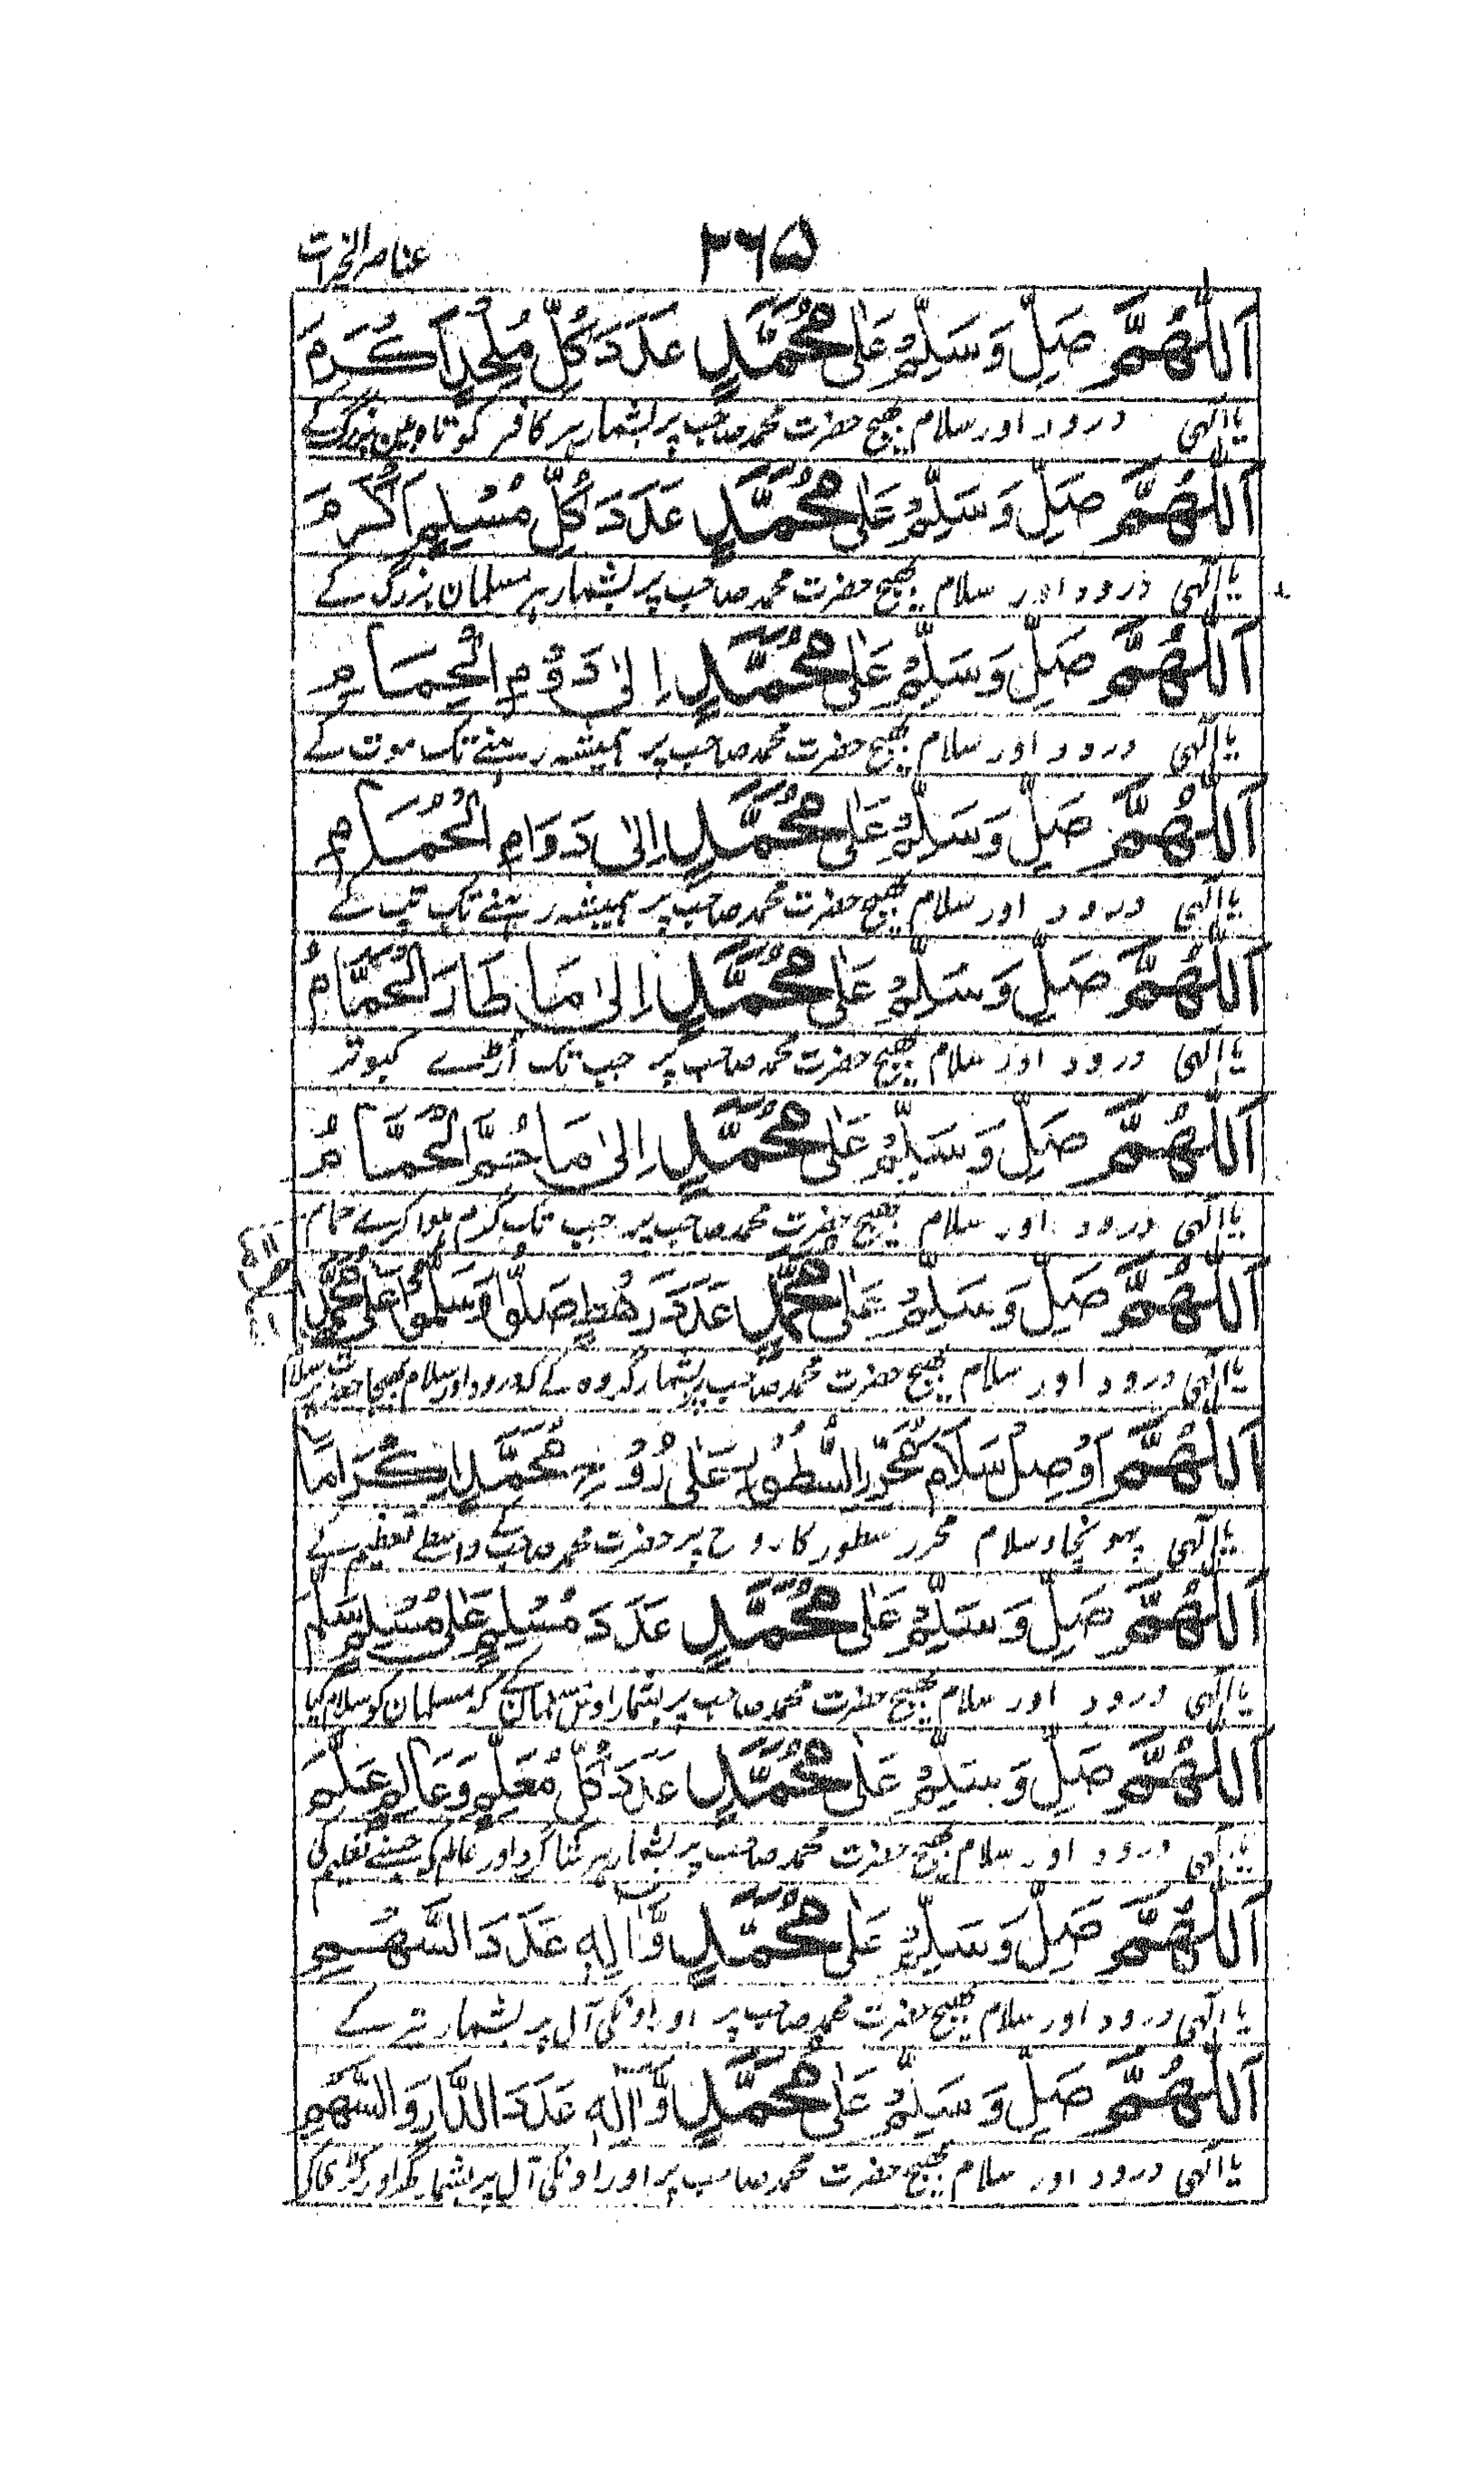 ۳۶۵ عناصر الخیرات
اَللّٰهُمَّ صَلِّ وَسَلِّمْ عَلٰى مُحَمَّدٍ عَدَدَ كُلِّ مُلْحِدٍ اَكْرَمَ
یا الٰہی درود اور سلام بھیج حضرت محمد صاحب پر بشمار ہر کافر کو تاوین بزرگ کے
اَللّٰهُمَّ صَلِّ وَسَلِّمْ عَلٰى مُحَمَّدٍ عَدَدَ كُلِّ مُسْلِمٍ اَكْرَمَ
یا الٰہی درود اور سلام بھیج حضرت محمد صاحب پر بشمار ہر مسلمان بزرگ کے
اَللّٰهُمَّ صَلِّ وَسَلِّمْ عَلٰى مُحَمَّدٍ اِلٰى دَوْمِ الْحِمَامِ
یا الٰہی درود اور سلام بھیج حضرت محمد صاحب پر ہمیشہ رہنے تک موت کے
اَللّٰهُمَّ صَلِّ وَسَلِّمْ عَلٰى مُحَمَّدٍ اِلٰى دَوَامِ الْحُمَامِ
یا الٰہی درود اور سلام بھیج حضرت محمد صاحب پر ہمیشہ رہنے تک تپ کے
اَللّٰهُمَّ صَلِّ وَسَلِّمْ عَلٰى مُحَمَّدٍ اِلٰى مَا طَارَ الْحَمَامُ
یا الٰہی درود اور سلام بھیج حضرت محمد صاحب پر جب تک اڑے کبوتر
اَللّٰهُمَّ صَلِّ وَسَلِّمْ عَلٰى مُحَمَّدٍ اِلٰى مَا حُمَّ الْحَمَّامُ
یا الٰہی درود اور سلام بھیج حضرت محمد صاحب پر جب تک گرم ہوا کرے حمام
اَللّٰهُمَّ صَلِّ وَسَلِّمْ عَلٰى مُحَمَّدٍ عَدَدَ رَهْطٍ صَلُّوْا وَسَلَّمُوْا عَلٰى مُحَمَّدٍ
یا الٰہی درود اور سلام بھیج حضرت محمد صاحب پر بشمار گروہ کے کہ درود اور سلام بھیجا حضرت پر
اَللّٰهُمَّ اَوْصِلْ سَلَامَ مُحَرِّرِ السُّطُوْرِ عَلٰى رُوْحِ مُحَمَّدٍ اِكْرَامًا
یا الٰہی پہونچا وسلام محرر سطور کا روح پر حضرت محمد صاحب کے واسطے تعظیم کے
اَللّٰهُمَّ صَلِّ وَسَلِّمْ عَلٰى مُحَمَّدٍ عَدَدَ مُسْلِمٍ عَلٰى مُسْلِمٍ سَلَّمَ
یا الٰہی درود اور سلام بھیج حضرت محمد صاحب پر بشمار اوس مسلمان کے کہ مسلمان کو سلام کیا
اَللّٰهُمَّ صَلِّ وَسَلِّمْ عَلٰى مُحَمَّدٍ عَدَدَ كُلِّ مُعَلِّمٍ وَعَالِمٍ عَلَّمَ
یا الٰہی درود اور سلام بھیج حضرت محمد صاحب پر بشمار ہر شاگرد اور عالم کے جسنے تعلیم کی
اَللّٰهُمَّ صَلِّ وَسَلِّمْ عَلٰى مُحَمَّدٍ وَّاٰلِهٖ عَدَدَ السَّهْمِ
یا الٰہی درود اور سلام بھیج حضرت محمد صاحب پر اور اونکی آل پر بشمار تیر کے
اَللّٰهُمَّ صَلِّ وَسَلِّمْ عَلٰى مُحَمَّدٍ وَّاٰلِهٖ عَدَدَ الدَّارِ وَالسَّهْمِ
یا الٰہی درود اور سلام بھیج حضرت محمد صاحب پر اور اونکی آل پر بشمار گھر اور کڑی کی